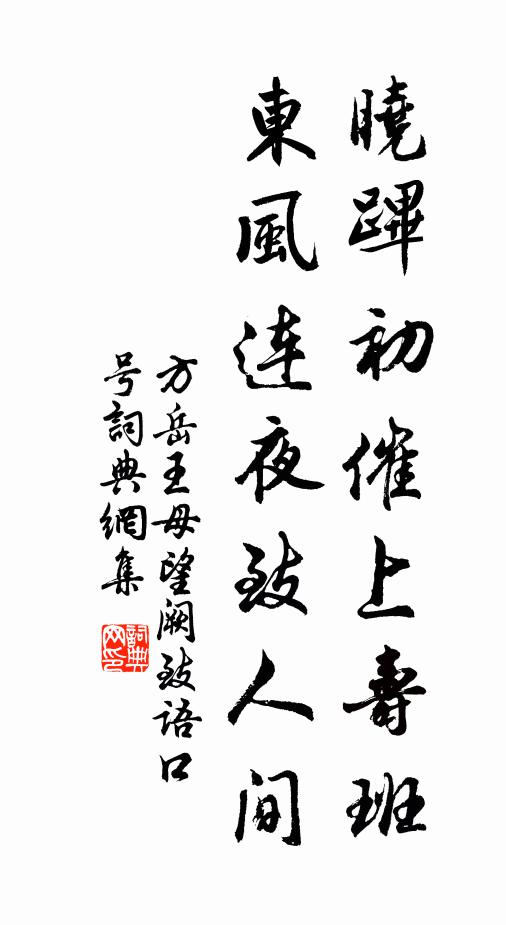 曉蹕初催上壽班
東風連夜致人間
方岳王母望闕致语口
号詞典網集
詞典網印